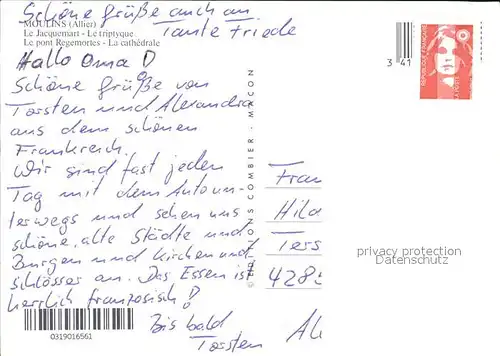 Schöne Grüße auch an
Tante Friede
MOULINS (Allier)
Le Jacquemart - Le triptyque
Le pont Regemortes - La cathédrale
Hallo Oma !
Schöne Grüße von
Torsten und Alexandra
aus dem schönen
Frankreich.
Wir sind fast jeden
Tag mit dem Auto un-
terwegs und sehen uns
schöne, alte Städte und
Burgen und Kirchen und
schlösser an. Das Essen ist
herrlich französisch!
Bis bald,
Torsten
0319016561
EDITIONS COMBIER - MACON
3 41
REPUBLIQUE FRANÇAISE
LA POSTE
Frau
Hila
Ters
4285
Al
privacy protection
Datenschutz